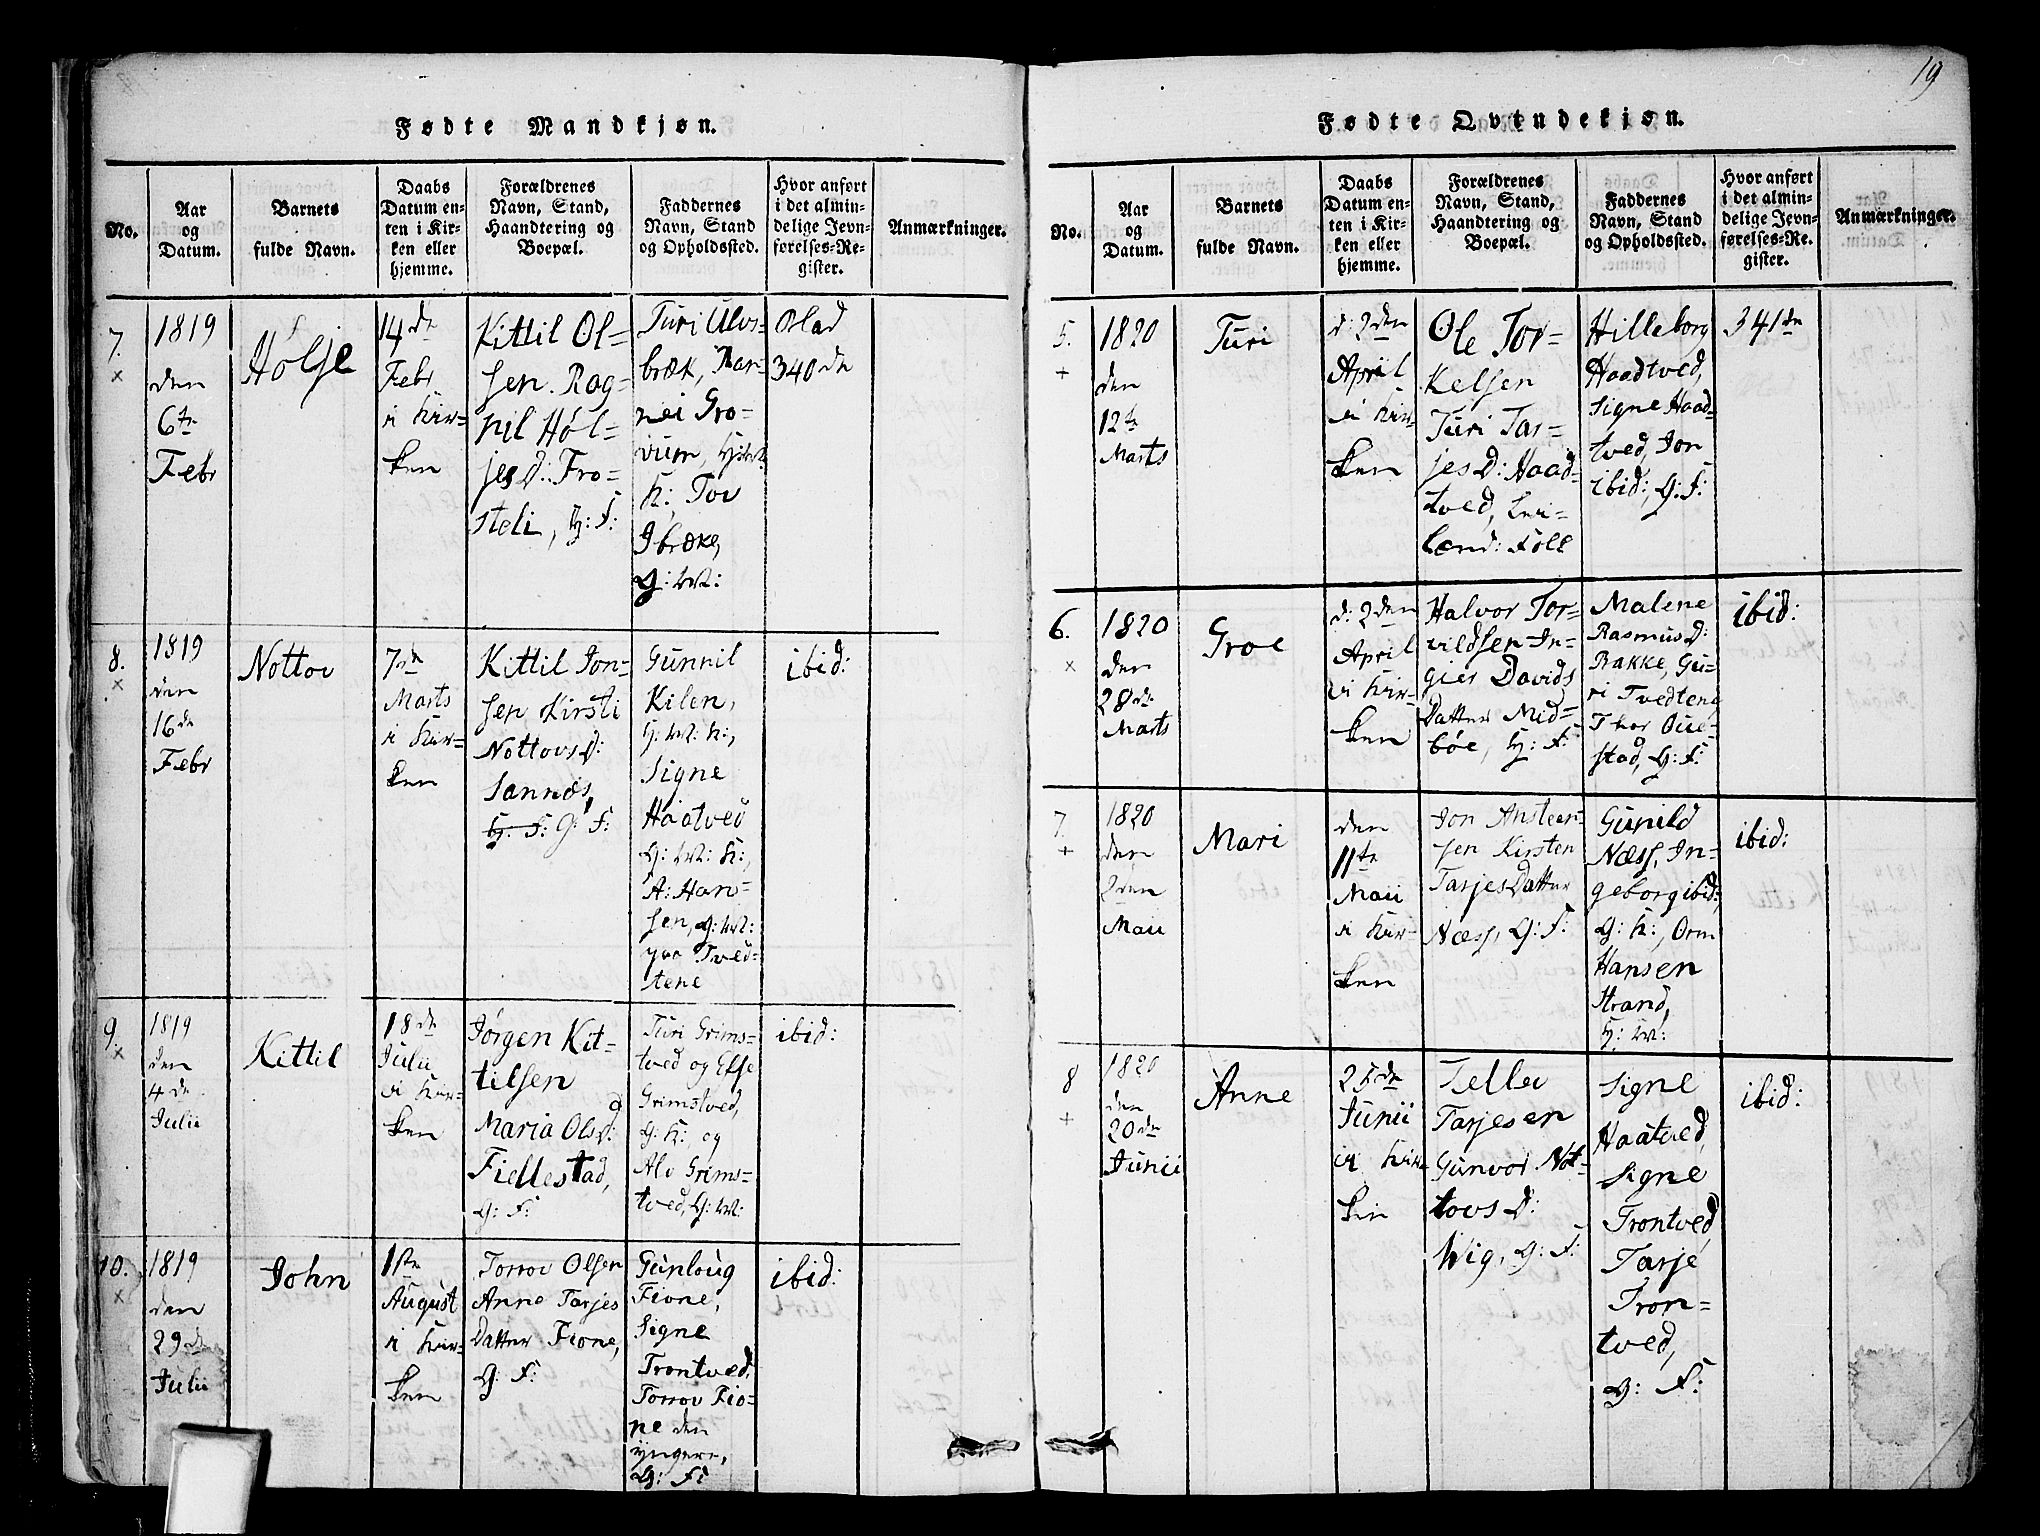 Fødte Mandkjøn.
No.
Aar
og
Datum.
Barnets
fulde Navn.
Daabs
Datum en-
ten i Kir-
ken eller
hjemme.
Forældrenes
Navn, Stand,
Haandtering og
Boepæl.
Faddernes
Navn, Stand
og Opholdssted.
Hvor anført
i det almin-
delige Jevn-
førelses-Re-
gister.
Anmærkninger.
7.
×
1819
den
6te
Febr
Holje
14de
Febr
i Kir-
ken
Kittil Ol-
sen. Rag-
nil Hol-
jesD: Fro-
steli, H: F:
Turi Ulvs-
bræk,
nei Gro-
vum,
K:, Tov
Ibræke,
G:
Blad
340de
8.
×
1819
den
16de
Febr
Nottov
7de
Marts
i Kir-
ken
Kittil Jon-
sen Kirsti
NottovsD:
Sannæs,
H: F: G: F:
Gunnil
Kilen,
H: M: K:,
Signe
Haatved
G: M: K:,
A: Han-
sen, G: M:
Tved-
tene
ibid:
9.
×
1819
den
4de
Julii
Kittil
18de
Julii
i Kir-
ken
Jørgen Kit-
tilsen
Maria OlsD:
Fiellestad,
G: F:
Turi Grims-
tved og
Grimstved,
G: K:, og
Alv Grims-
tved, G: M:
ibid:
10.
×
1819
den
29de
Julii
John
1ste
August
i Kir-
ken
Torrov Olsen
Anne Tarjes
Datter Fione,
G: F:
Gunloug
Fione,
Signe
Trontved,
Torrov Fio-
ne den
yngere,
G: F:
ibid:
19
Fødte Qvindekjøn.
No.
Aar
og
Datum.
Barnets
fulde Navn.
Daabs
Datum en-
ten i Kir-
ken eller
hjemme.
Forældrenes
Navn, Stand,
Haandtering og
Boepæl.
Faddernes
Navn, Stand
og Opholdssted.
Hvor anført
i det almin-
delige Jevn-
førelses-Re-
gister.
Anmærkninger.
5.
+
1820
den
12te
Marts
Turi
d: 2den
April
i Kir-
ken
Ole Tor-
kelsen
Turi Tar-
jesD: Haad-
tved,
lænd: Folk
Hilleborg
Haadtved,
Signe Haad-
tved, Jon
ibid:, G: F:
341de
6.
×
1820
den
28de
Marts
Groe
d: 2den
April
i Kir-
ken
Halvor Tor-
vildsen In-
gier Davids
Datter Mid-
bøe, H: F:
Malene
RasmusD:
Bakke, Gu-
ri Tvedtene
Thor Que-
stad, G: F:
ibid:
7.
+
1820
den
2den
Maii
Mari
den
11te
Maii
i Kir-
ken
Jon Ansteen-
sen Kirsten
TarjesDatter
Næss, G: F:
Gunild
Næss, In-
geborg ibid:,
G: K:, Orm
Hansen
Strand,
H: M:
ibid:
8
+
1820
den
20de
Junii
Anne
25de
Junii
i Kir-
ken
Tellev
Tarjesen
Gunvor Not-
tovsD:
Wig, G: F:
Signe
Haatved,
Signe
Trontved,
Tarje
Tron-
tved,
G: F:
ibid: